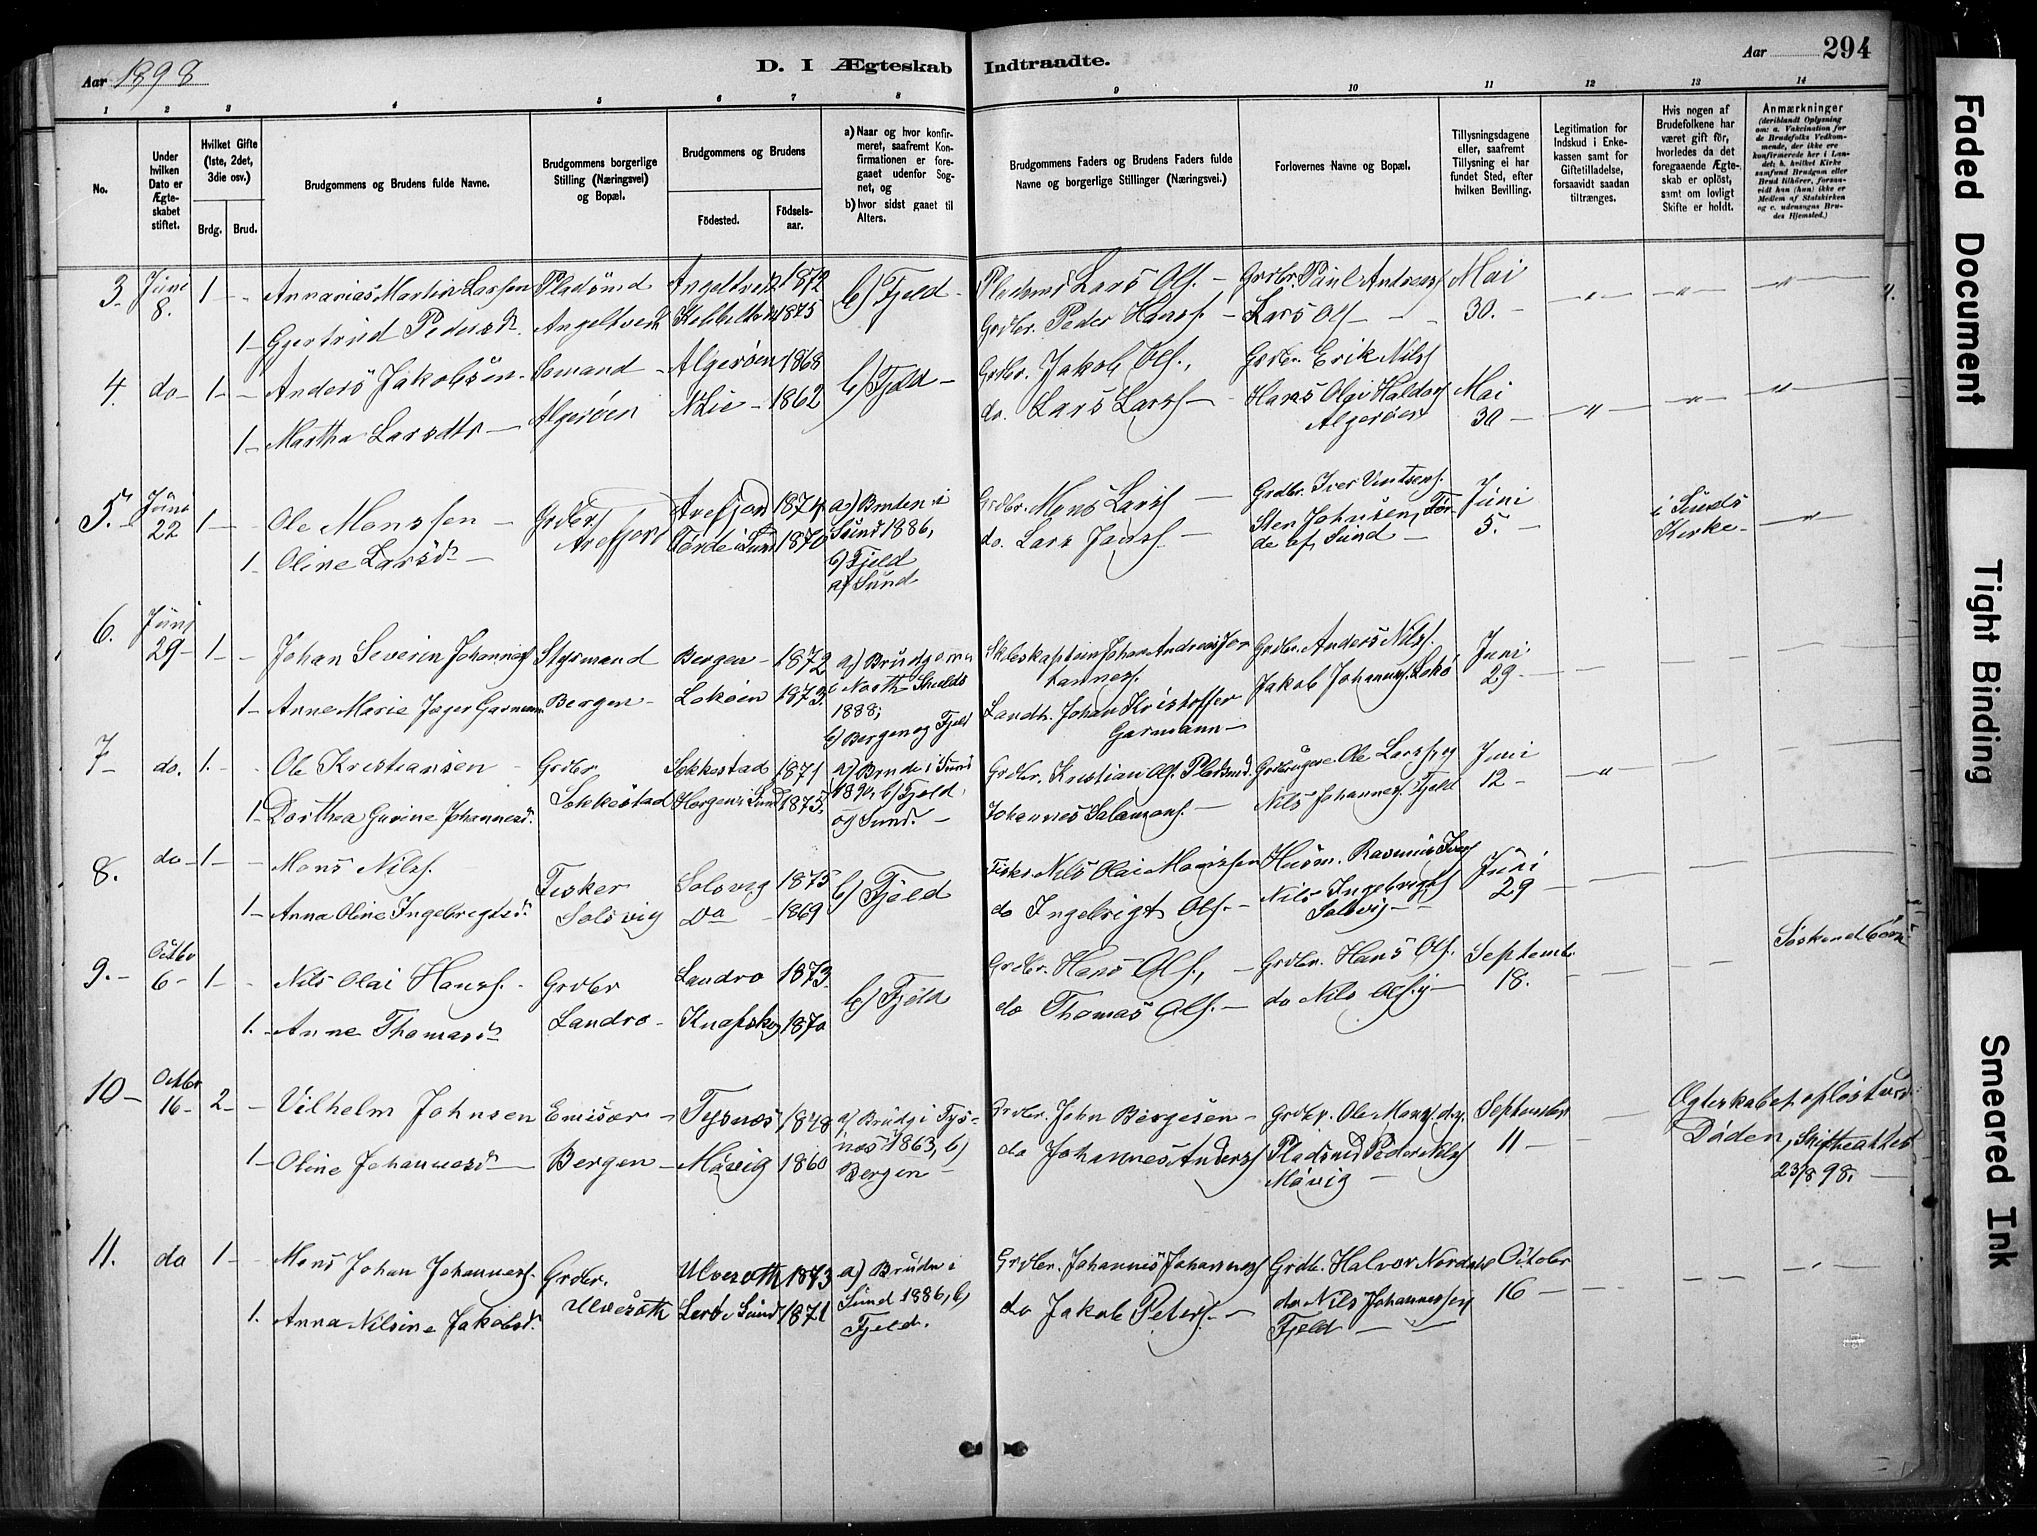 Aar 1898
D. I Ægteskab Indtraadte.
Aar 294
1 2 3 4 5 6 7 8 9 10 11 12 13 14
No.
Under hvilken Dato er Ægteskabet stiftet.
Hvilket Gifte (1ste, 2det, 3die osv.)
Brdg. Brud.
Brudgommens og Brudens fulde Navne.
Brudgommens borgerlige Stilling (Næringsvei) og Bopæl.
Brudgommens og Brudens
Födested. Födselsaar.
a) Naar og hvor konfirmeret, saafremt Konfirmationen er foregaaet udenfor Sognet, og
b) hvor sidst gaaet til Alters.
Brudgommens Faders og Brudens Faders fulde Navne og borgerlige Stillinger (Næringsvei.)
Forlovernes Navne og Bopæl.
Tillysningsdagene eller, saafremt Tillysning ei har fundet Sted, efter hvilken Bevilling.
Legitimation for Indskud i Enkekassen samt for Giftetilladelse, forsaavidt saadan tiltrænges.
Hvis nogen af Brudefolkene har været gift för, hvorledes da det foregaaende Ægteskab er oplöst, samt om lovligt Skifte er holdt.
Anmærkninger (deriblandt Oplysning om: a. Vakcination for de Brudefolks Vedkommende, der ikke ere konfirmerede her i Landet; b. hvilket Kirkesamfund Brudgom eller Brud tilhörer, forsaavidt han (hun) ikke er Medlem af Statskirken og c. udensogns Brudes Hjemsted.)
3. Juni 8. 1 - Annanias Martin Larsen Pladsmd Angeltveit 1872 b) Fjeld - Pladsmd Lars Ols. - Grdbr. Paul Andreas Mai 30. - " - " - "
1 - Gjertrud Pedersdr. Angeltveit 1875 Grdbr. Peder Hans - Lars Ols -
4. do 1 - Anders Jakobsen - Sömand - Algeröen 1868 b) Fjeld - Grdbr. Jakob Ols., Grdbr. Erik Nils Mai 30 - " - " - "
1 - Martha Larsdtr - Algeröen Lie - 1862 do. Lars Lars - Hans Olai Haldor Algeröen
5. Juni 22 1 - Ole Monssen - Grdbr Arefjord Arefjord 1874 a) Bruden i Sund 1886, b) Fjeld og Sund Grdbr. Mons Lars - Grdbr. Iver Vintsens. Juni 5. - i Sunds Kirke - "
1 - Oline Larsdr - Törde i Sund 1870 do. Lars Jans - Sten Johnsen, Törde af Sund -
6. Juni 29 - 1 - Johan Severin Johannes Styrmand Bergen - 1872 a) Brudgom i North Shields 1888; b) Bergen og Fjeld Skibskaptein Johan Andreas Johannes. Grdbr. Anders Nils. Juni 29 -
1 - Anne Marie Jeger Garmann Bergen - Loköen 1873. Landh. Johan Kristoffer Garmann - Jakob Johannes Lokö
7 - do. 1. - Ole Kristiansen - Grdbr Sekkestad 1871 a) Brud i Sund 1890, b) Fjeld og Sund. - Grdbr. Kristian Ols. Pladsmd. Grdbrugere Ole Lars og Juni 12 - "
1 - Dorthea Gurine Johannesdr. Sekkestad i Sund 1875. Johannes Salamons. - Nils Johannes. Fjeld
8. do - 1 - Mons Nils. Fisker Solsvig 1875 b) Fjeld Fisker Nils Olai Monssen Husm. Rasmus Iver Juni 29 -
1 - Anna Oline Ingebrigtsdr. Solsvig Do - 1869 do Ingebrigt Ols. - Nils Ingebrigts Solsvig -
9. - Octbr 6 - 1 - Nils Olai Hans. - Grdbr Landro 1873. b) Fjeld Grdbr. Hans Ols., - Grdbr. Hans Ols. Septembr. 18. Söskendebörn
1. - Anne Thomasdr - Landro - Knapskog 1870 do Thomas Ols. - do Nils Ols.
10 - Octbr 16 - 2 - Vilhelm Johnsen Emisær - Tysnes 1848 a) Brudg i Tysnæs 1863, b) Bergen Grdbr. John Börgesen - Grdbr. Ole Mons. og Septembr 11 - Ægteskabet oplöst ved Döden, Skifteattest 23/8 98.
1 - Oline Johannesdr - Bergen - Mövig 1860 do Johannes Anders Pladsmd Peder Nils Mövig -
11. do 1 - Mons Johan Johannes. Grdbr. Ulvesæth 1873 a) Bruden i Sund 1886, b) Fjeld. Grdbr. Johannes Johannes Grdb. Halvor Octobr 16 -
1. Anna Nilsine Jakobsdr. Ulvesæth Lerö i Sund 1871 do Jakob Peters. - do Nils Johannessen Fjeld -
Faded Document
Tight Binding
Smeared Ink